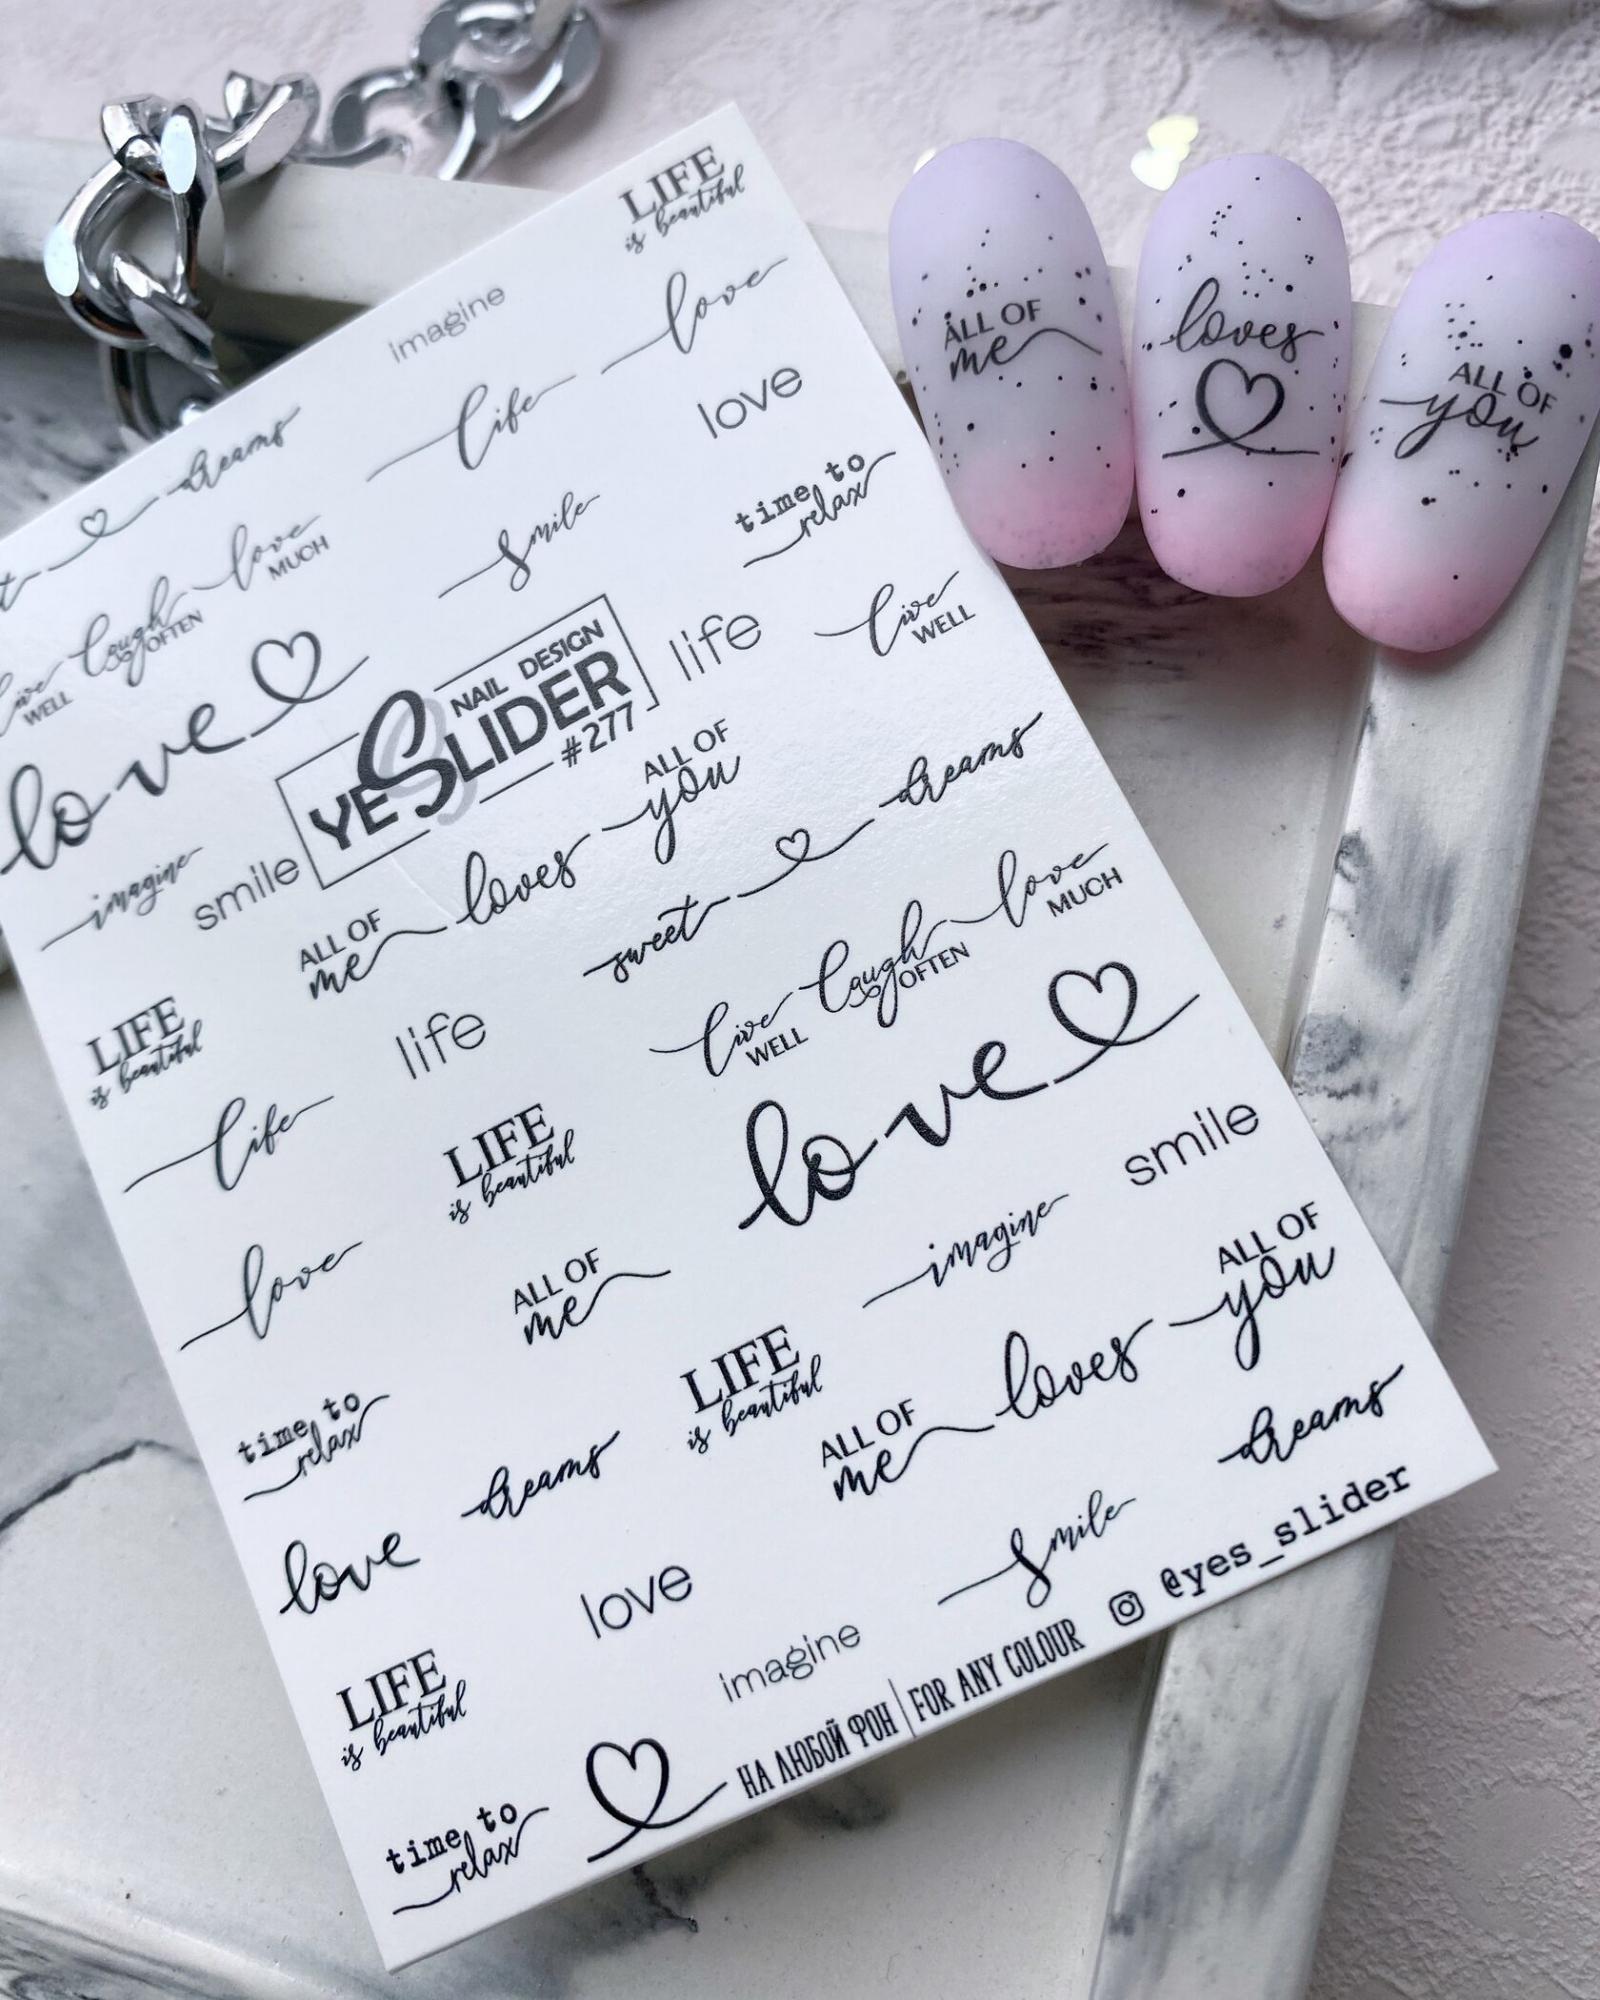 LIFE
is beautiful
imagine
love
life
love
dreams
time to
relax
smile
love
MUCH
laugh
OFTEN
live
WELL
life
live
WELL
love
NAIL DESIGN
YESLIDER
#277
imagine
smile
ALL OF
me
loves
ALL OF
you
sweet
dreams
LIFE
is beautiful
life
live
WELL
laugh
OFTEN
love
MUCH
life
LIFE
is beautiful
love
smile
love
ALL OF
me
imagine
time to
relax
dreams
LIFE
is beautiful
ALL OF
me
loves
ALL OF
you
dreams
love
love
smile
LIFE
is beautiful
imagine
time to
relax
НА ЛЮБОЙ ФОН | FOR ANY COLOUR
@yes_slider
ALL OF
me
loves
ALL OF
you